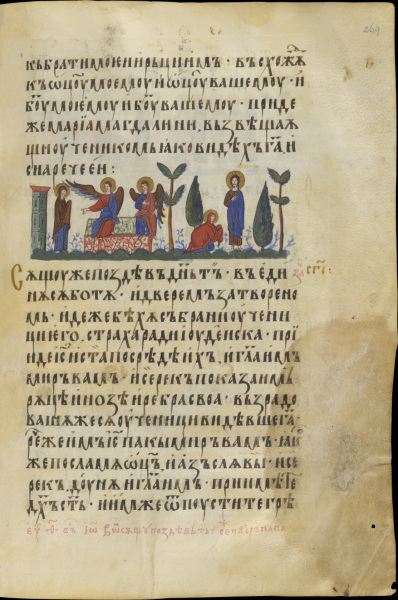 къбратимоеиирьциимъ · въсхожѫ
къѡц҃оумоемоуиѡц҃оувашемоу · и
б҃оумоемоуиб҃оувашемоу · приде
жемаріамагдалини, възвѣщаѫ
щиоученикомъꙗковидѣхъг҃аи
сиаречеей :
Сѫщоужепоздѣвъдн҃ьтъ · въеди
нѫсѫботѫ · идверемъзатворено
мь · идежебѣхѫсъбраниоучени
циего, страхарадиіоуденска · прі
идеі҃систа посрѣдѣихъ, иг҃лаимъ
миръвамъ · исерекъпоказаимъ
рѫцѣинозѣиребрасвоа · възрадо
вашѫжесѫоученицивидѣвшега ·
речежеимъі҃спакымиръвамъ · ꙗк
жепосламѧѡц҃ь, иазъслѧвы · исе
рекъ, доунѫиг҃лаимъ · приимѣте
д҃хъст҃ъ · иимжеѿпоуститегрѣ
269